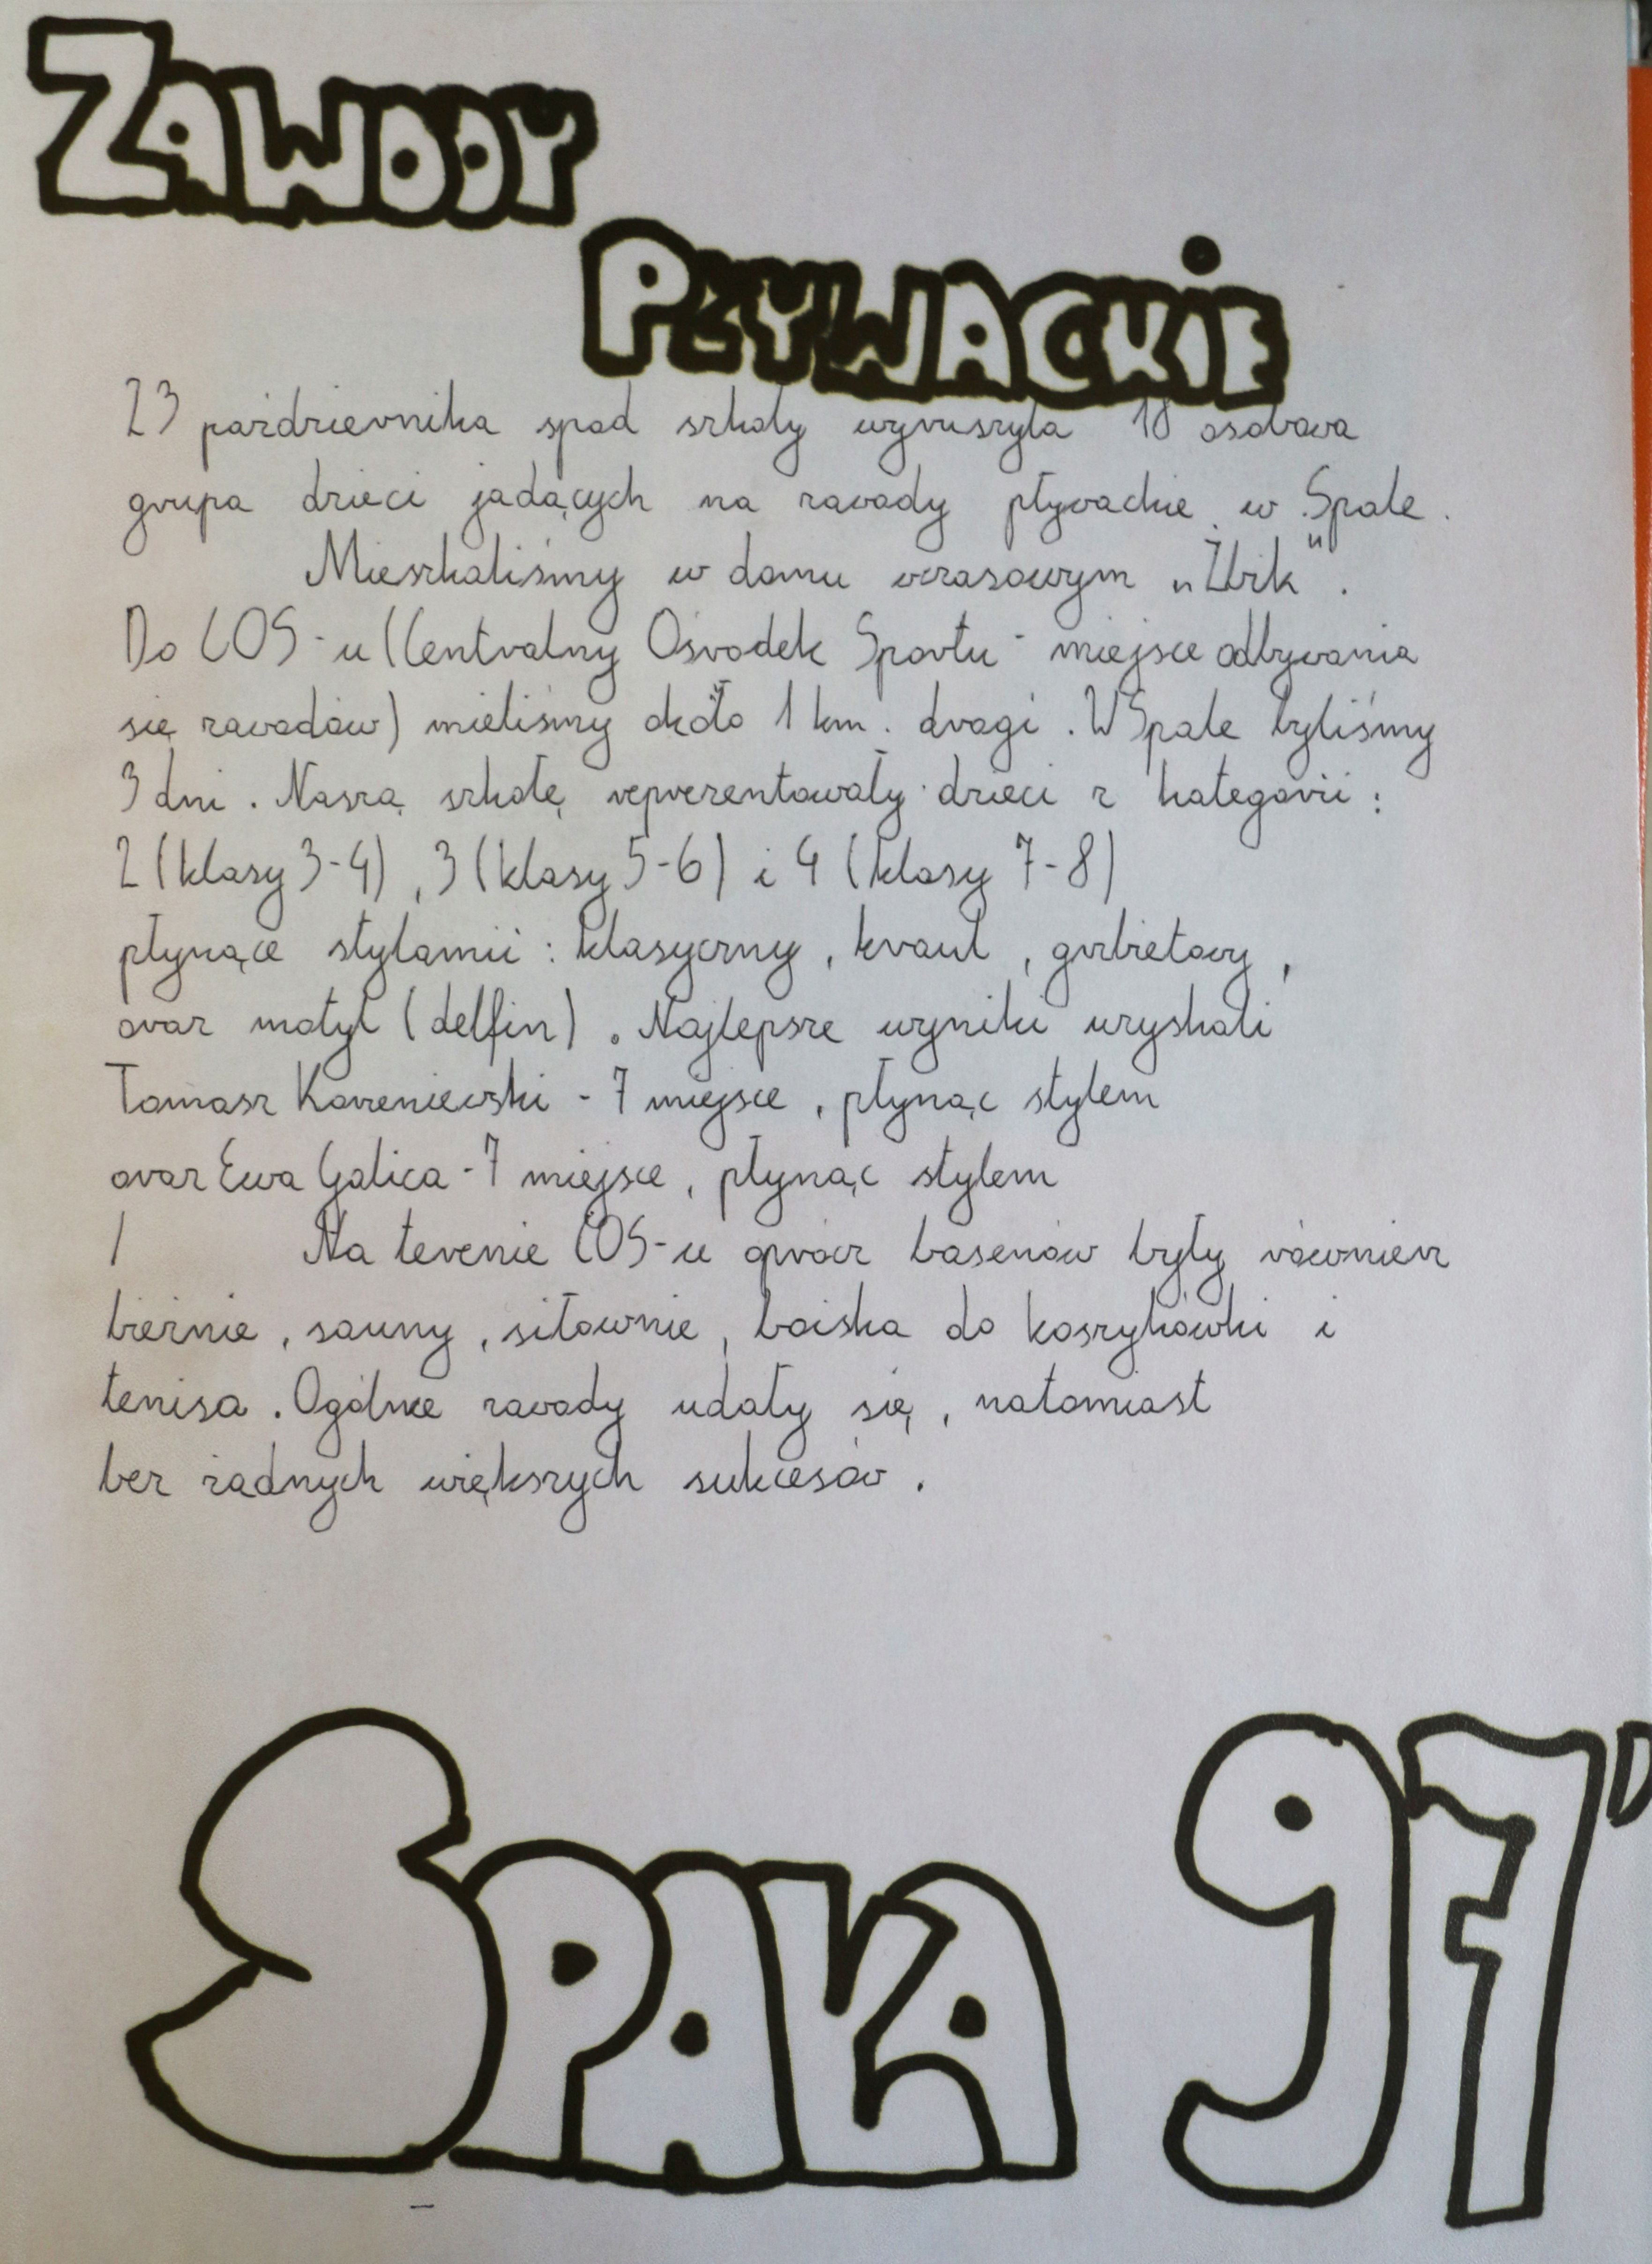 ZAWODY
PŁYWACKIE
23 październnika spod szkoły wyruszyła 18 osobowa
grupa dzieci jadących na zawody pływackie w Spale.
Mieszkaliśmy w domu wczasowym „Żbik".
Do COS-u (Centralny Ośrodek Sportu - miejsce odbywania
się zawodów) mieliśmy około 1 km. drogi. W Spale byliśmy
3 dni. Naszą szkołę reprezentowały dzieci z kategorii:
2 (klasy 3-4), 3 (klasy 5-6) i 4 (klasy 7-8)
płynące stylamii: klasyczny, kraul, grzbietowy,
oraz motyl (delfin). Najlepsze wyniki uzyskali
Tomasz Korzeniewski - 7 miejsce, płynąc stylem
oraz Ewa Galica - 7 miejsce, płynąc stylem
Na terenie COS-u oprócz basenów były również
bieżnie, sauny, siłownie, boiska do koszykówki i
tenisa. Ogólnie zawody udały się, natomiast
bez żadnych większych sukcesów.
SPAŁA 97'